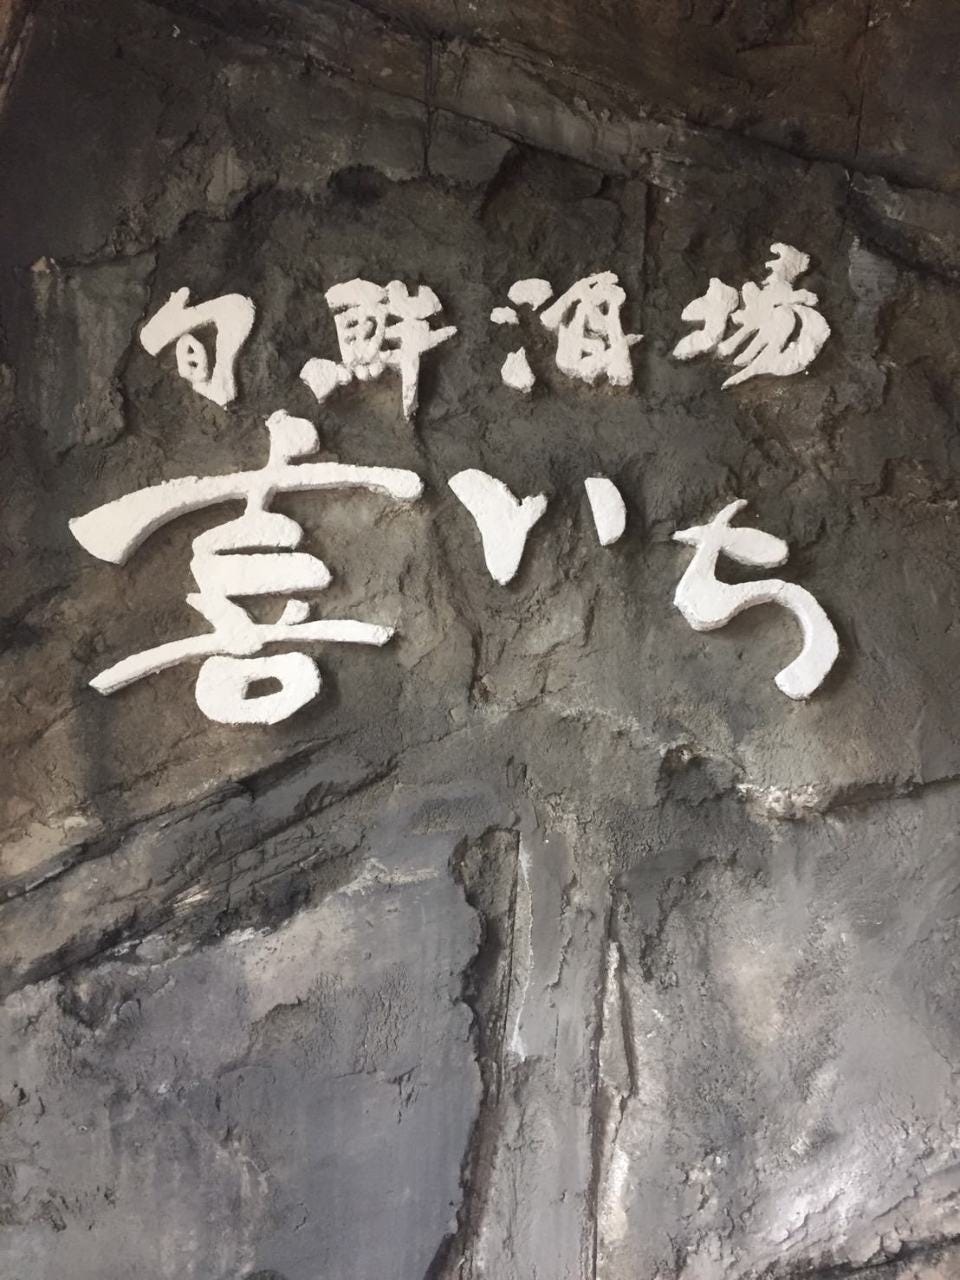 旬鮮酒場
喜いち